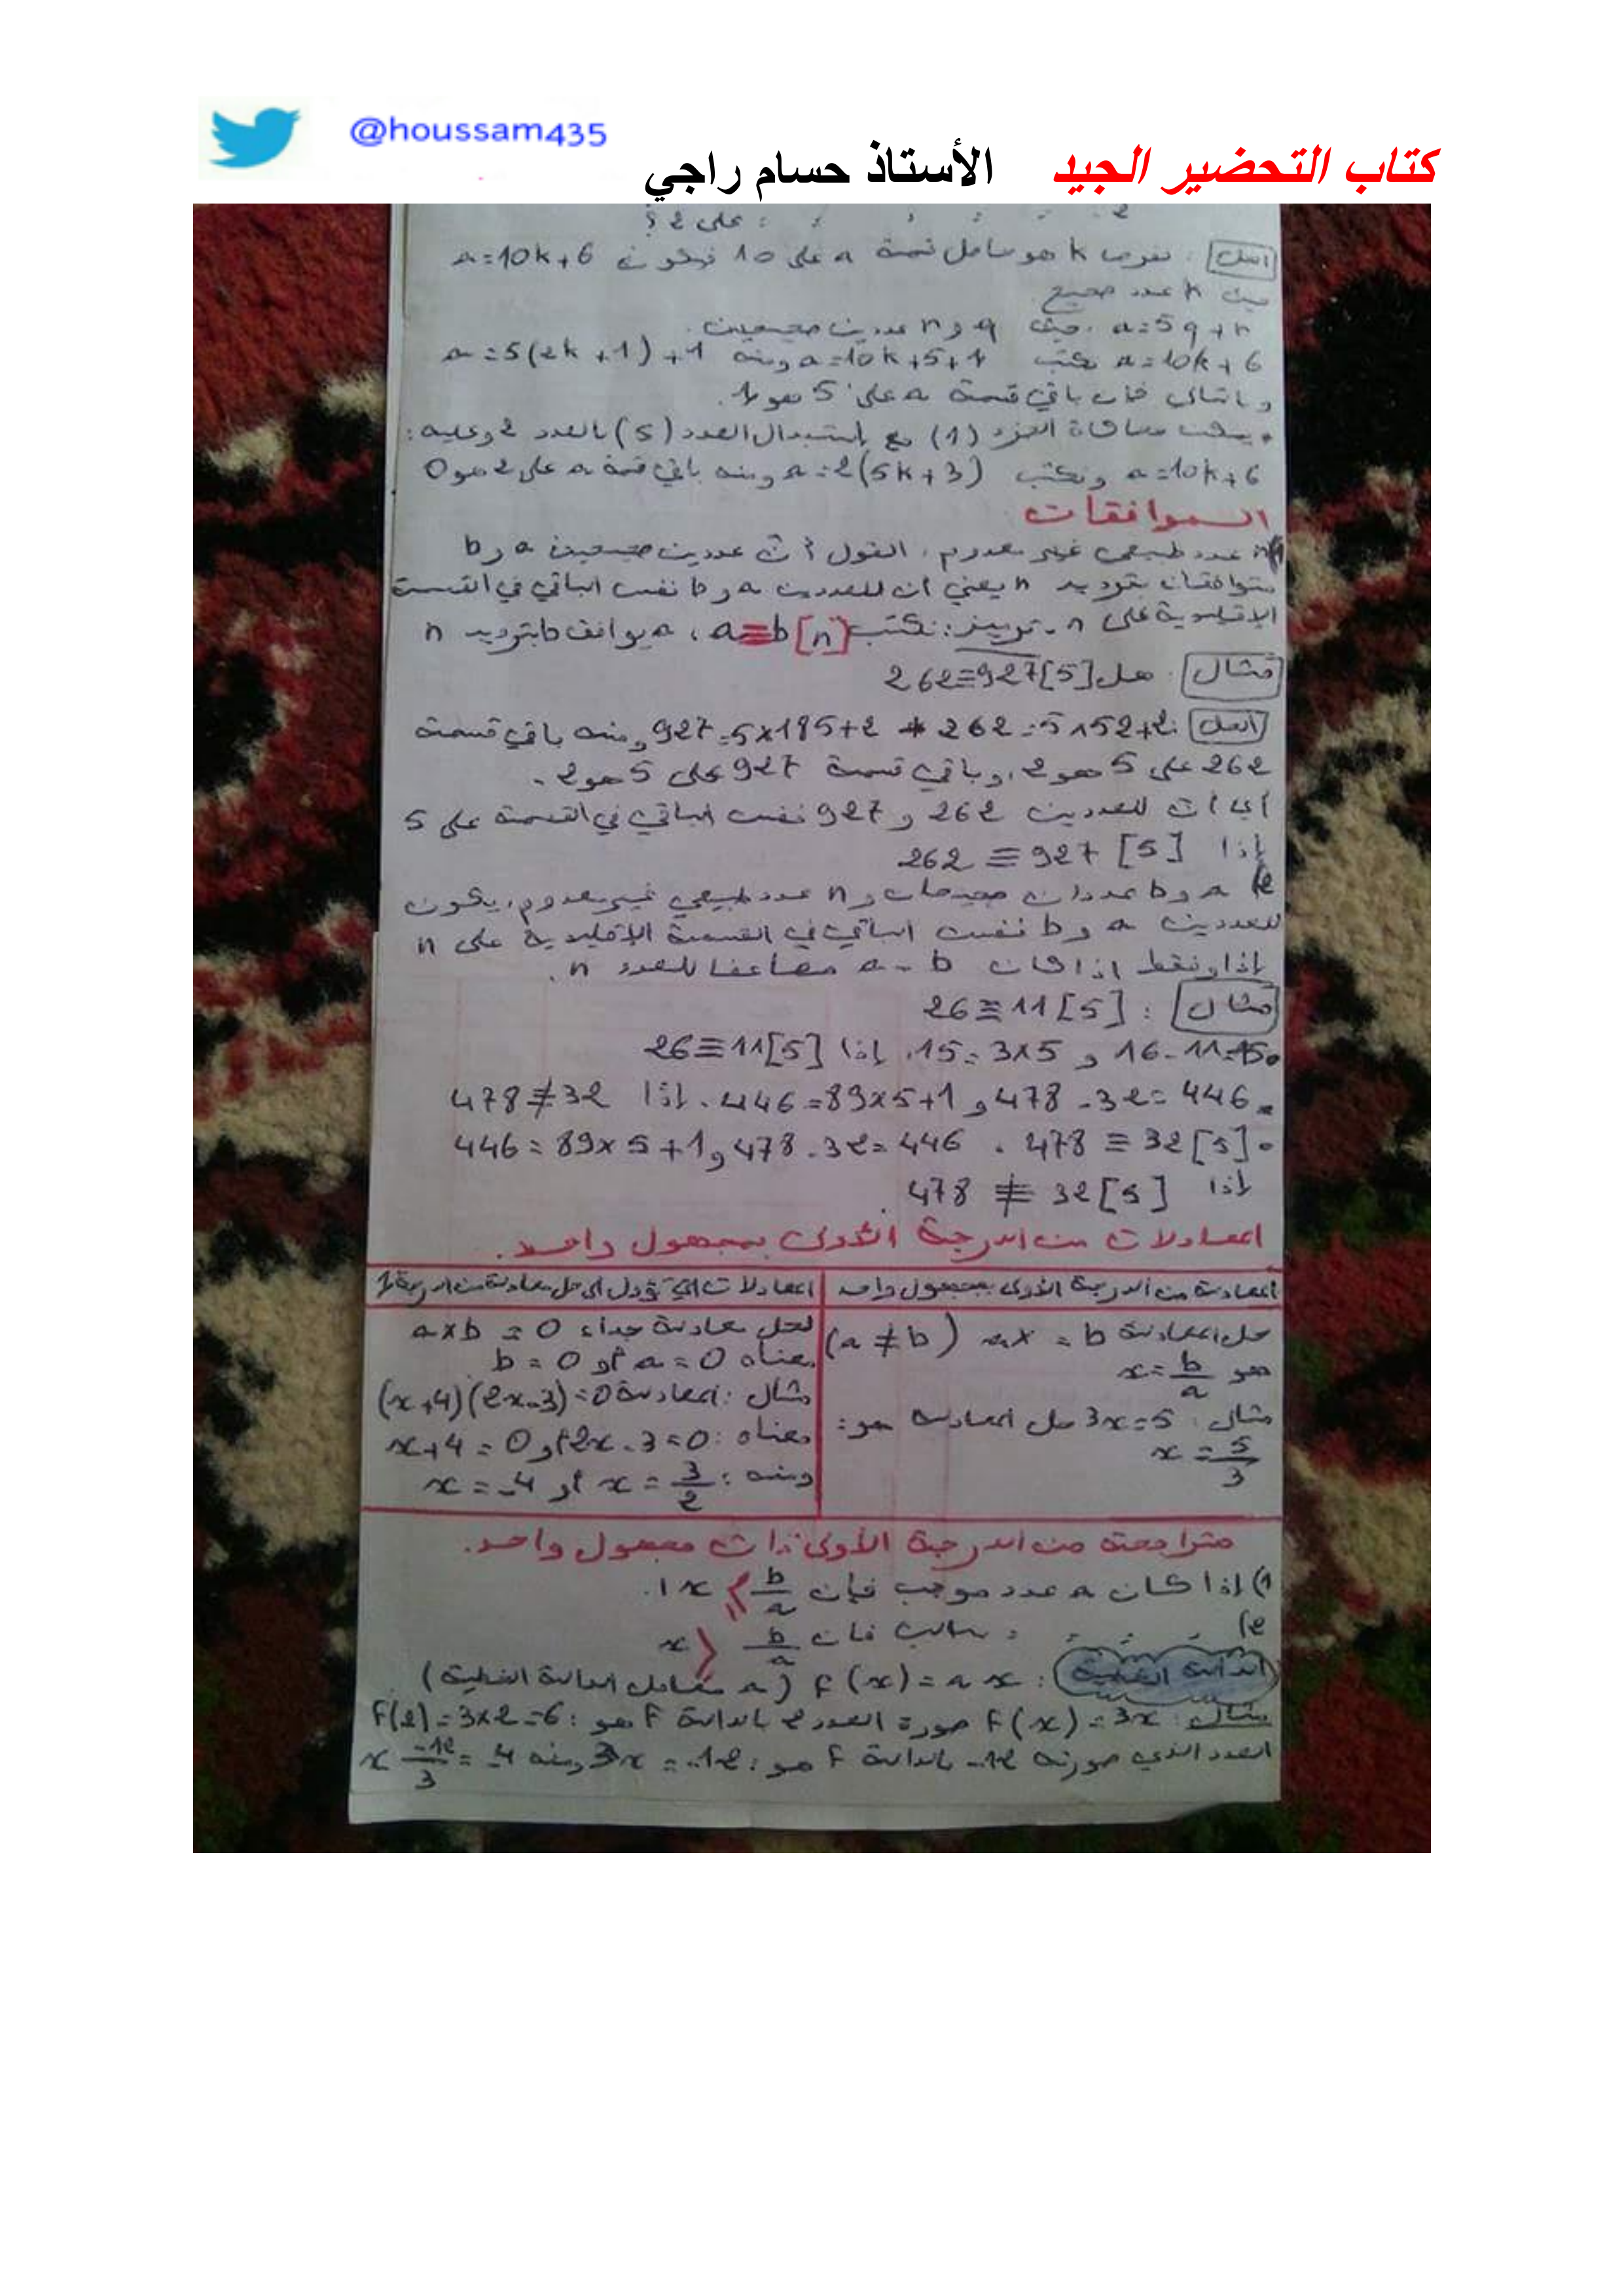 @houssam435
كتاب التحضير الجيد الأستاذ حسام راجي
على 2 ؟
الحل : نفرض k هو حاصل قسمة a على 10 فيكون a=10k+6
حيث k عدد صحيح
a=5q+r حيث q و r عددين صحيحين.
a=10k+6 نكتب a=10k+5+1 ومنه a=5(2k+1)+1
وبالتالي فإن باقي قسمة a على 5 هو 1.
العدد (5) بالعدد 2 وعليه :
a=10k+6 ونكتب a=2(5k+3) ومنه باقي قسمة a على 2 هو 0
الموافقات
1) n عدد طبيعي غير معدوم، القول أن عددين صحيحين a و b
متوافقان بترديد n يعني ان للعددين a و b نفس الباقي في القسمة
الإقليدية على n. ترميز: نكتب a≡b[n]، a يوافق b بترديد n
مثال . هل 262≡927[5]
الحل : 262=5×52+2 * 927=5×185+2 ومنه باقي قسمة
262 على 5 هو 2، وباقي قسمة 927 على 5 هو 2.
أي أن للعددين 262 و 927 نفس الباقي في القسمة على 5
إذا 262 ≡ 927 [5]
2) a و b عددان صحيحان و n عدد طبيعي غير معدوم، يكون
للعددين a و b نفس الباقي في القسمة الإقليدية على n
إذا وفقط اذا كان a - b مضاعفا للعدد n.
مثال : 26≡11[5]
16-11=15 و 15=3×5. إذا 26≡11[5]
478-32=446 و 446=89×5+1. إذا 478≢32
478 ≡ 32[5] . 478-32=446 و 446=89×5+1
إذا 478 ≢ 32[5]
المعادلات من الدرجة الأولى بمجهول واحد.
المعادلة من الدرجة الأولى بمجهول واحد
حل المعادلة ax = b (a ≠ b)
هو x=b/a
مثال : 3x=5 حل المعادلة هو:
x = 5/3
المعادلات التي تؤول الى حل معادلة من الدرجة 1
لحل معادلة جداء a×b = 0
معناه a=0 أو b=0
مثال : المعادلة (x+4)(2x-3)=0
معناه : 2x-3=0 أو x+4=0
ومنه : x=3/2 أو x=-4
متراجحة من الدرجة الأولى ذات مجهول واحد.
1) إذا كان a عدد موجب فإن b/a x
2) سالب فان b/a x
الدالة الخطية : f(x)=ax (a معامل الدالة الخطية)
مثال : f(x)=3x صورة العدد 2 بالدالة f هو : f(2)=3×2=6
العدد الذي صورته -12 بالدالة f هو : 3x=-12 ومنه x -12/3 = -4